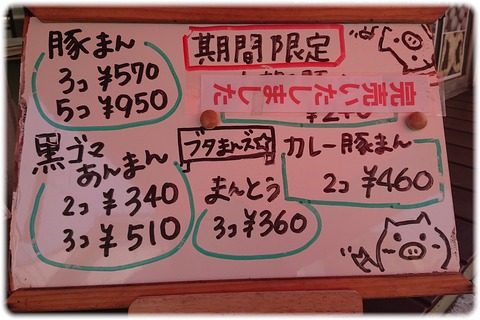 豚まん
3コ ¥570
5コ ¥950
期間限定
完売いたしました
黒ゴマ
あんまん
2コ ¥340
3コ ¥510
ブタまんズ☆
まんとう
3コ ¥360
カレー豚まん
2コ ¥460